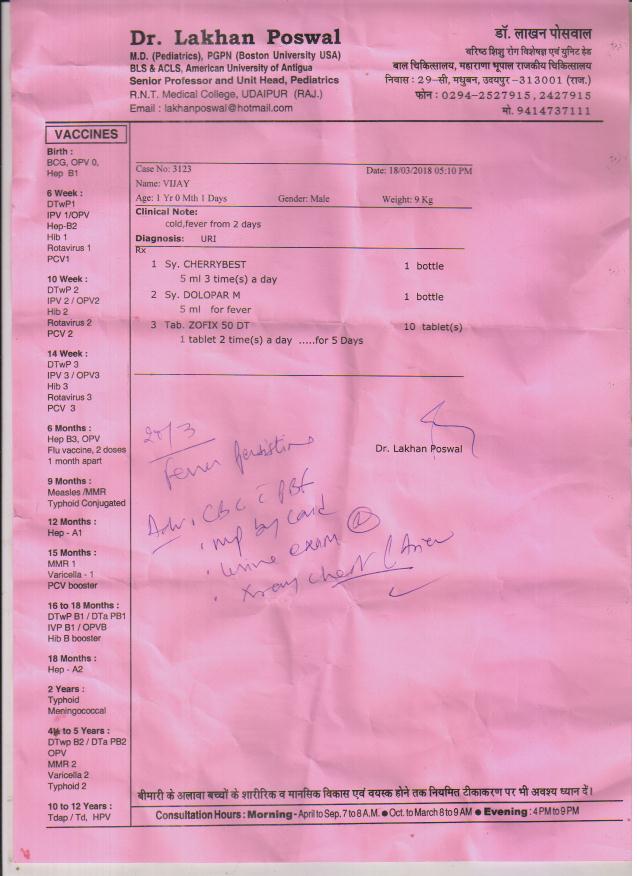 Dr. Lakhan Poswal
M.D. (Pediatrics), PGPN (Boston University USA)
BLS & ACLS, American University of Antigua
Senior Professor and Unit Head, Pediatrics
R.N.T. Medical College, UDAIPUR (RAJ.)
Email : lakhanposwal@hotmail.com
डॉ. लाखन पोसवाल
वरिष्ठ शिशु रोग विशेषज्ञ एवं यूनिट हेड
बाल चिकित्सालय, महाराणा भूपाल राजकीय चिकित्सालय
निवास : 29-सी, मधुबन, उदयपुर-313001 (राज.)
फोन : 0294-2527915, 2427915
मो. 9414737111
VACCINES
Birth :
BCG, OPV 0,
Hep B1
6 Week :
DTwP1
IPV 1/OPV
Hep-B2
Hib 1
Rotavirus 1
PCV1
10 Week :
DTwP 2
IPV 2 / OPV2
Hib 2
Rotavirus 2
PCV 2
14 Week :
DTwP 3
IPV 3 / OPV3
Hib 3
Rotavirus 3
PCV 3
6 Months :
Hep B3, OPV
Flu vaccine, 2 doses
1 month apart
9 Months :
Measles /MMR
Typhoid Conjugated
12 Months :
Hep - A1
15 Months :
MMR 1
Varicella - 1
PCV booster
16 to 18 Months :
DTwP B1 / DTa PB1
IVP B1 / OPVB
Hib B booster
18 Months :
Hep - A2
2 Years :
Typhoid
Meningococcal
4½ to 5 Years :
DTwp B2 / DTa PB2
OPV
MMR 2
Varicella 2
Typhoid 2
10 to 12 Years :
Tdap / Td, HPV
Case No: 3123 Date: 18/03/2018 05:10 PM
Name: VIJAY
Age: 1 Yr 0 Mth 1 Days Gender: Male Weight: 9 Kg
Clinical Note:
cold,fever from 2 days
Diagnosis: URI
Rx
1 Sy. CHERRYBEST 1 bottle
5 ml 3 time(s) a day
2 Sy. DOLOPAR M 1 bottle
5 ml for fever
3 Tab. ZOFIX 50 DT 10 tablet(s)
1 tablet 2 time(s) a day .....for 5 Days
Dr. Lakhan Poswal
20/3
Fever
Adv: CBC c PBF
mp by card
urine exam
Xray chest
बीमारी के अलावा बच्चों के शारीरिक व मानसिक विकास एवं वयस्क होने तक नियमित टीकाकरण पर भी अवश्य ध्यान दें।
Consultation Hours : Morning - April to Sep. 7 to 8 A.M. ● Oct. to March 8 to 9 AM ● Evening : 4 PM to 9 PM